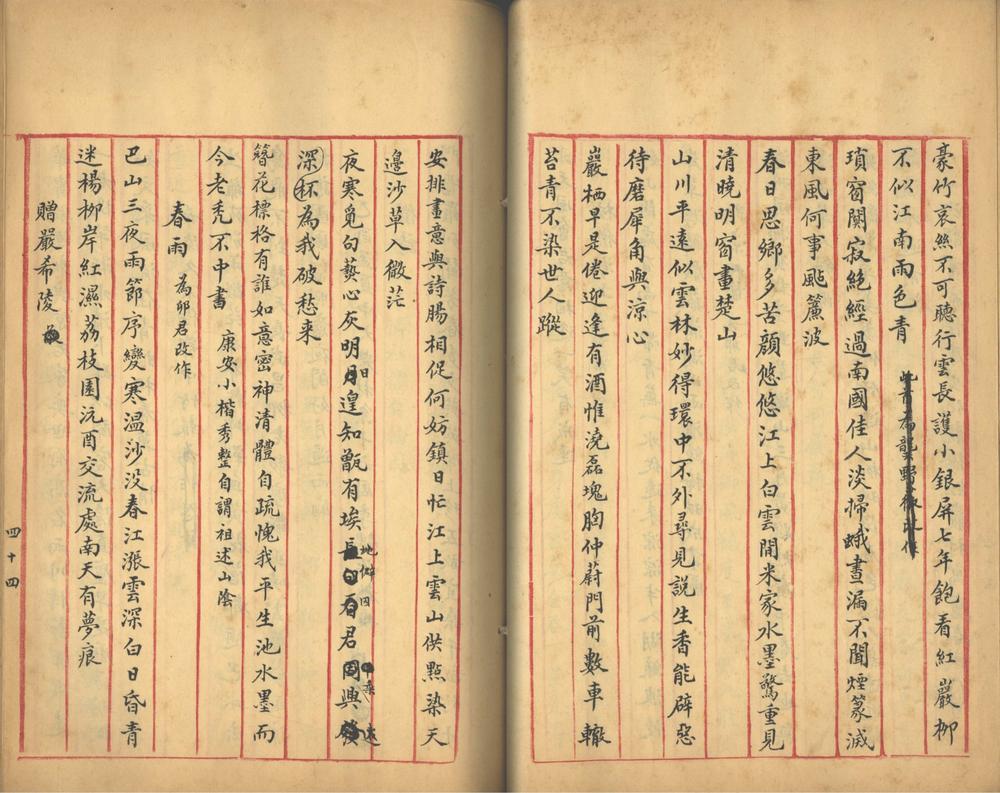 豪竹哀絲不可聽行雲長護小銀屏七年飽看紅巖柳
不似江南雨色青
瑣窗闃寂絕經過南國佳人淡掃蛾晝漏不聞煙篆滅
東風何事颭簾波
春日思鄉多苦顏悠悠江上白雲閒米家水墨驚重見
清曉明窗畫楚山
山川平遠似雲林妙得環中不外尋見說生香能辟惡
待磨犀角與涼心
巖栖早是倦迎逢有酒惟澆磊塊胸仲蔚門前數車轍
苔青不染世人蹤
安排畫意與詩腸相促何妨鎮日忙江上雲山供點染天
邊沙草入微茫
夜寒覓句藝心灰明遑知甑有埃地僻君與遠
深杯為我破愁來
簪花標格有誰如意密神清體自疏愧我平生池水墨而
今老禿不中書 康安小楷秀整自謂祖述山陰
春雨 為卯君改作
巴山三夜雨節序變寒溫沙沒春江漲雲深白日昏青
迷楊柳岸紅濕荔枝園沅酉交流處南天有夢痕
贈嚴希陵
四十四